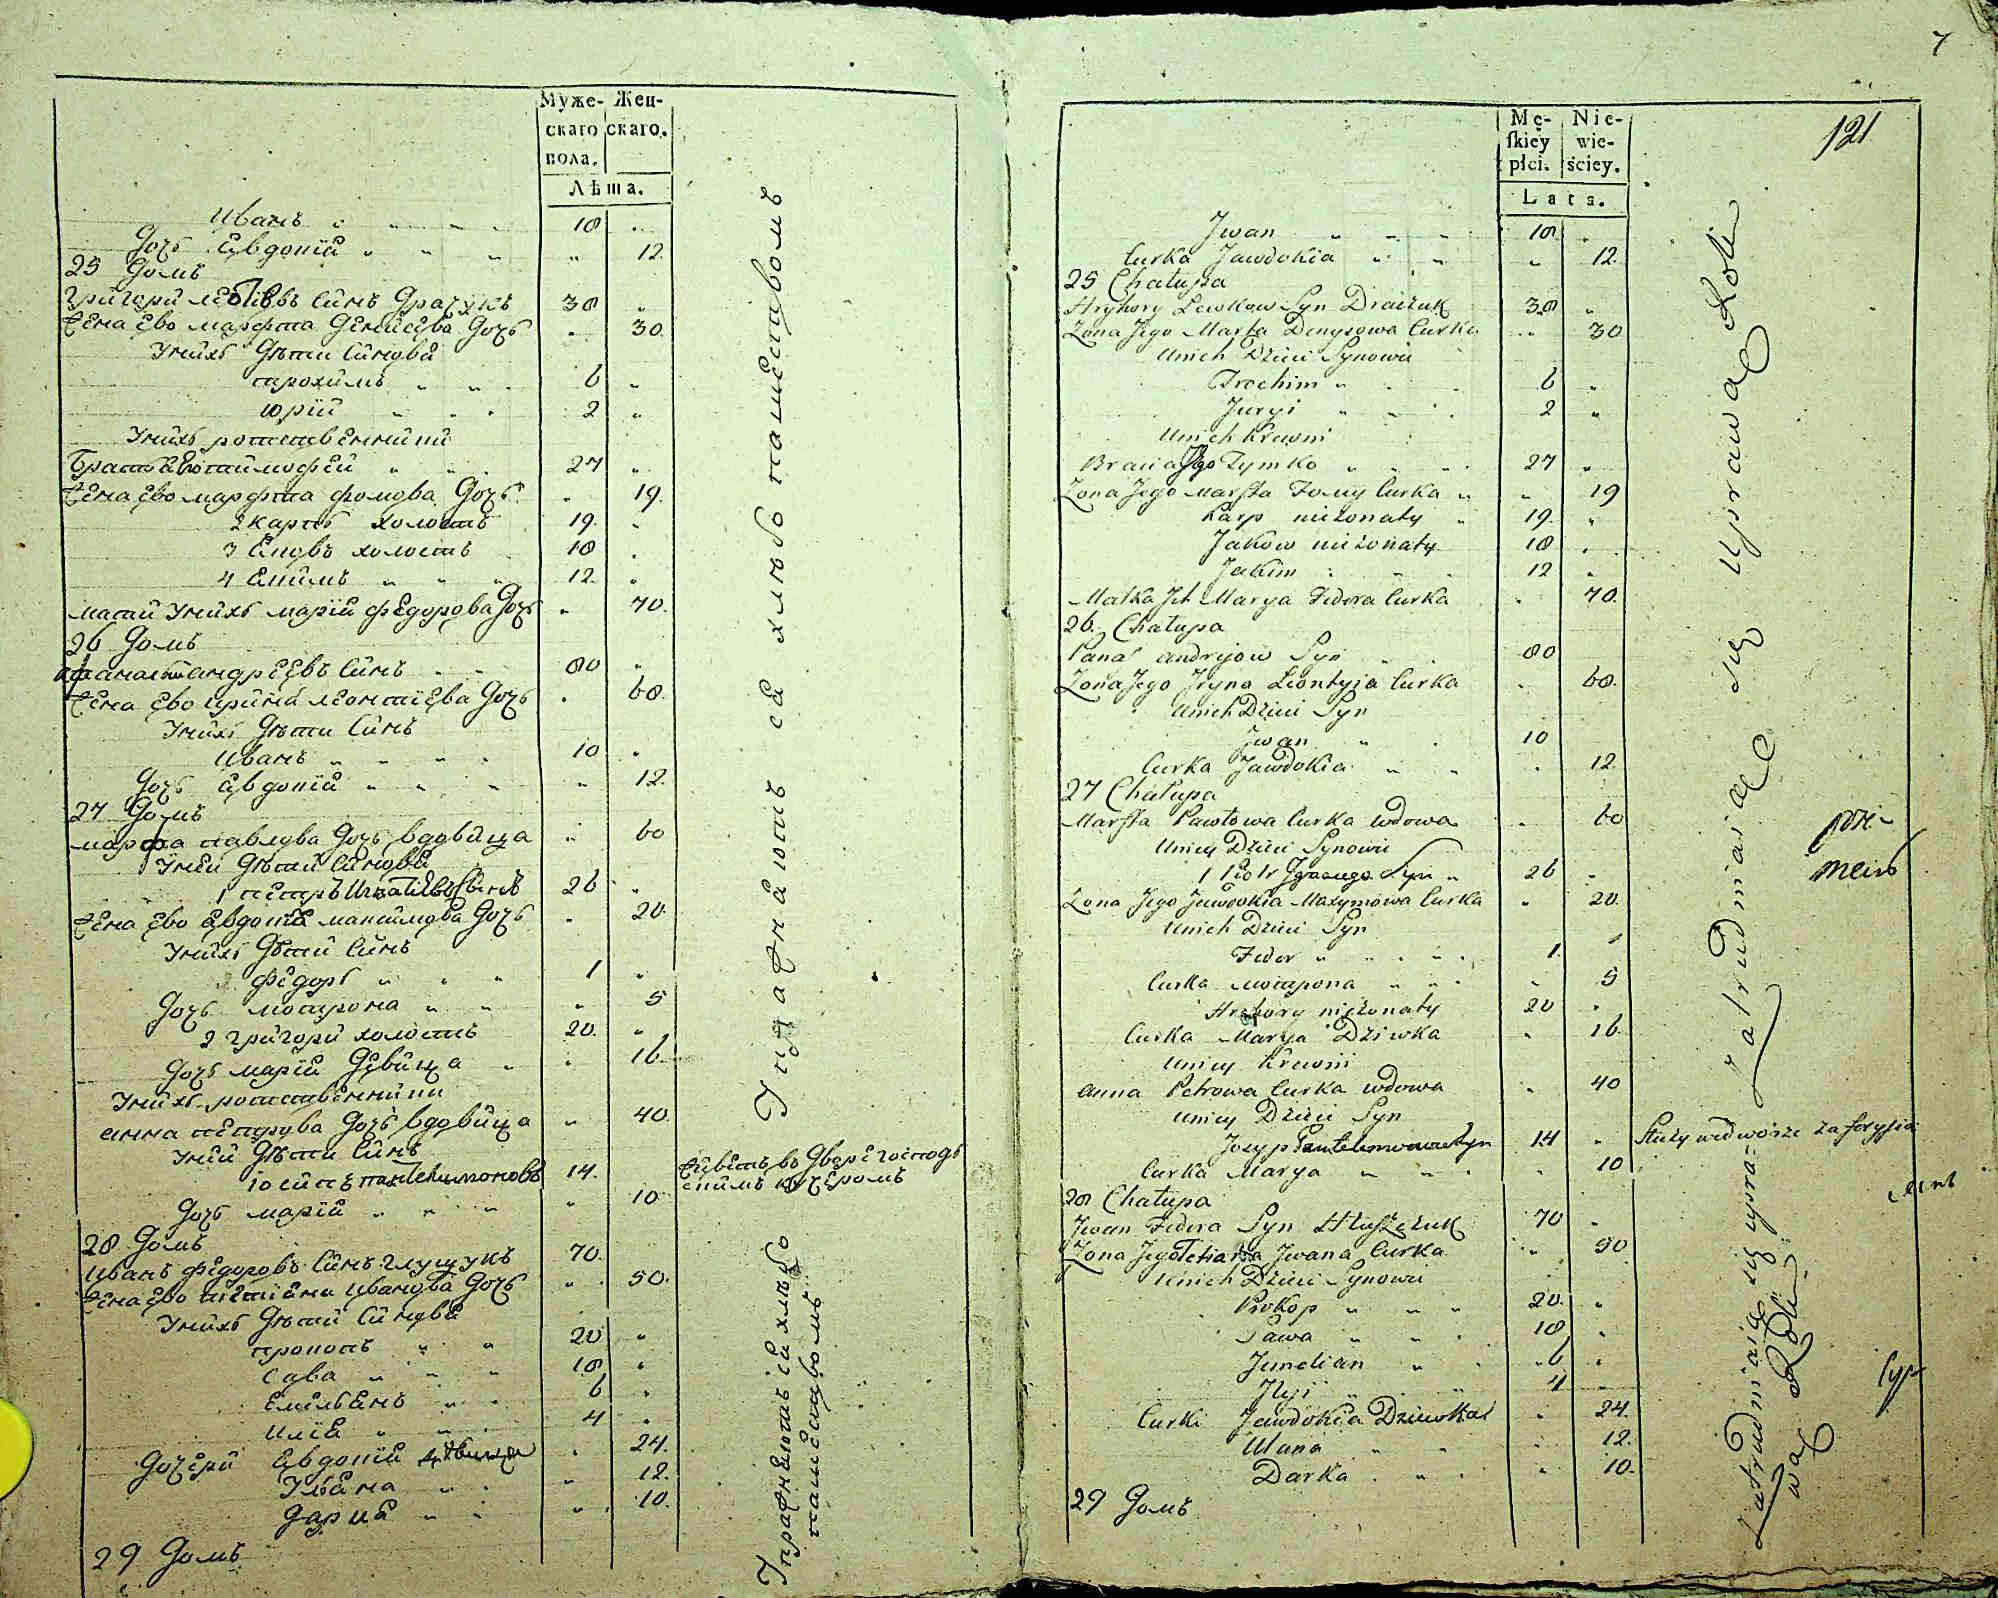 Муже-
скаго
пола.
Жен-
скаго.
Лѣта.
Иванъ 18
Дочь Евдокія 12
25 Домъ
Григори Левковъ Синъ Драчукъ 38
Жена Ево Марфта Денисева Дочь 30.
У нихъ Дѣти Синови
трохимъ 6
юрій 2
У нихъ
Братъ Ево тимофей 27
Жена Ево марфта фомова Дочь 19.
2 карпъ холостъ 19.
3 холостъ 18
4 12.
мати У нихъ марія федорова Дочь 70.
26 Домъ
андреевъ Синъ 80
Жена Ево ирина леонтіева Дочь 68.
У нихъ Дѣти Синъ
Иванъ 10
Дочь Евдокія 12.
27 Домъ
марфа павлова Дочь вдовица 60
У ней Дѣти Синови
1 петръ Синъ 26
Жена Ево Евдокія максимова Дочь 20.
У нихъ Дѣти Синъ
федоръ 1
Дочь мотрона 5
2 Григори холостъ 20.
Дочь марія Девица 16.
У нихъ
анна петрова Дочь вдовица 40.
У ней Дѣти Синъ
іосипъ пантелимоновъ 14.
Дочь марія 10
28 Домъ
Иванъ федоровъ Синъ глущукъ 70.
Жена Ево тетіана Иванова Дочь 50.
У нихъ Дѣти Синови
прокопъ 20
Сава 18
Емильянъ 6
Илія 4
Дочери Евдокія дѣвица 24.
Уляна 12.
Дарія 10.
29 Домъ
Упражняютъ ся хлѣбо пашествомъ
Живетъ въ Дворе
Упражняютъ ся хлѣбо
пашествомъ
7
121
Mę-
ſkiey
płci.
Nie-
wie-
ściey.
Lata.
Jwan 18
Curka Jawdokia 12.
25 Chałupa
Hryhory Lewkow Syn Draczuk 38
Zona Jego Marfta Denysowa Curka 30
Unich Dzieci Synowie
Trochim 6
Juryi 2
Unich Krewni
Bracia Jego Tymko 27
Zona Jego Marfta Fomy Curka 19
Karp nieżonaty 19.
Jakow nieżonaty 18
Jakim 12
Matka Ich Marya Fedora Curka 70.
26. Chałupa
Panas Andryiow Syn 80
Zona Jego Jryna Leontyia Curka 68.
Unich Dzieci Syn
Jwan 10
Curka Jawdokia 12.
27 Chałupa
Marfta Pawłowa Curka wdowa 60
Uniey Dzieci Synowie
1 Piotr Syn 26
Zona Jego Jawdokia Maxymowa Curka 20.
Unich Dzieci Syn
Fedor 1.
Curka Motrona 5
Hrehory nieżonaty 20
Curka Marya Dziwka 16
Uniey Krewni
Anna Petrowa Curka wdowa 40
Uniey Dzieci Syn
Jozyp Pantelimonow Syn 14
Służy we dworze za
Curka Marya 10
28 Chałupa
Jwan Fedora Syn Hłuszczuk 70
Zona Jego Tetiana Jwana Curka 50
Unich Dzieci Synowie
Prokop 20.
Sawa 18
Jmelian 6
Jlyi 4
Curki Jawdokia Dziewka 24.
Ulana 12.
Darka 10.
29 Домъ
Zatrudniaiące się Uprawą Roli
Zatrudniaią się upra=
wą Roli